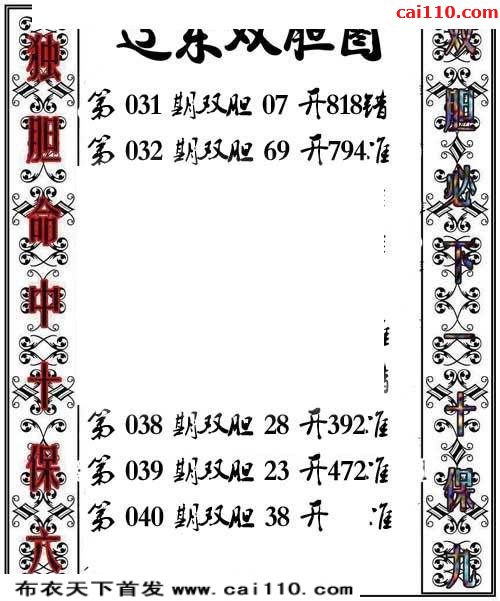 cai110.com
辽东双胆图
第 031 期双胆 07 开818错
第 032 期双胆 69 开794准
第 038 期双胆 28 开392准
第 039 期双胆 23 开472准
第 040 期双胆 38 开 准
独胆命中十保六
双胆必下一十保九
布衣天下首发 www.cai110.com